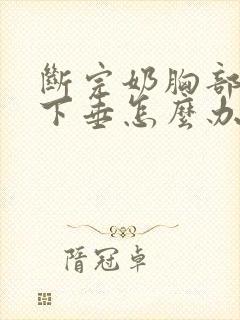 斷完奶胸部
下垂怎麼办
隋冠卓